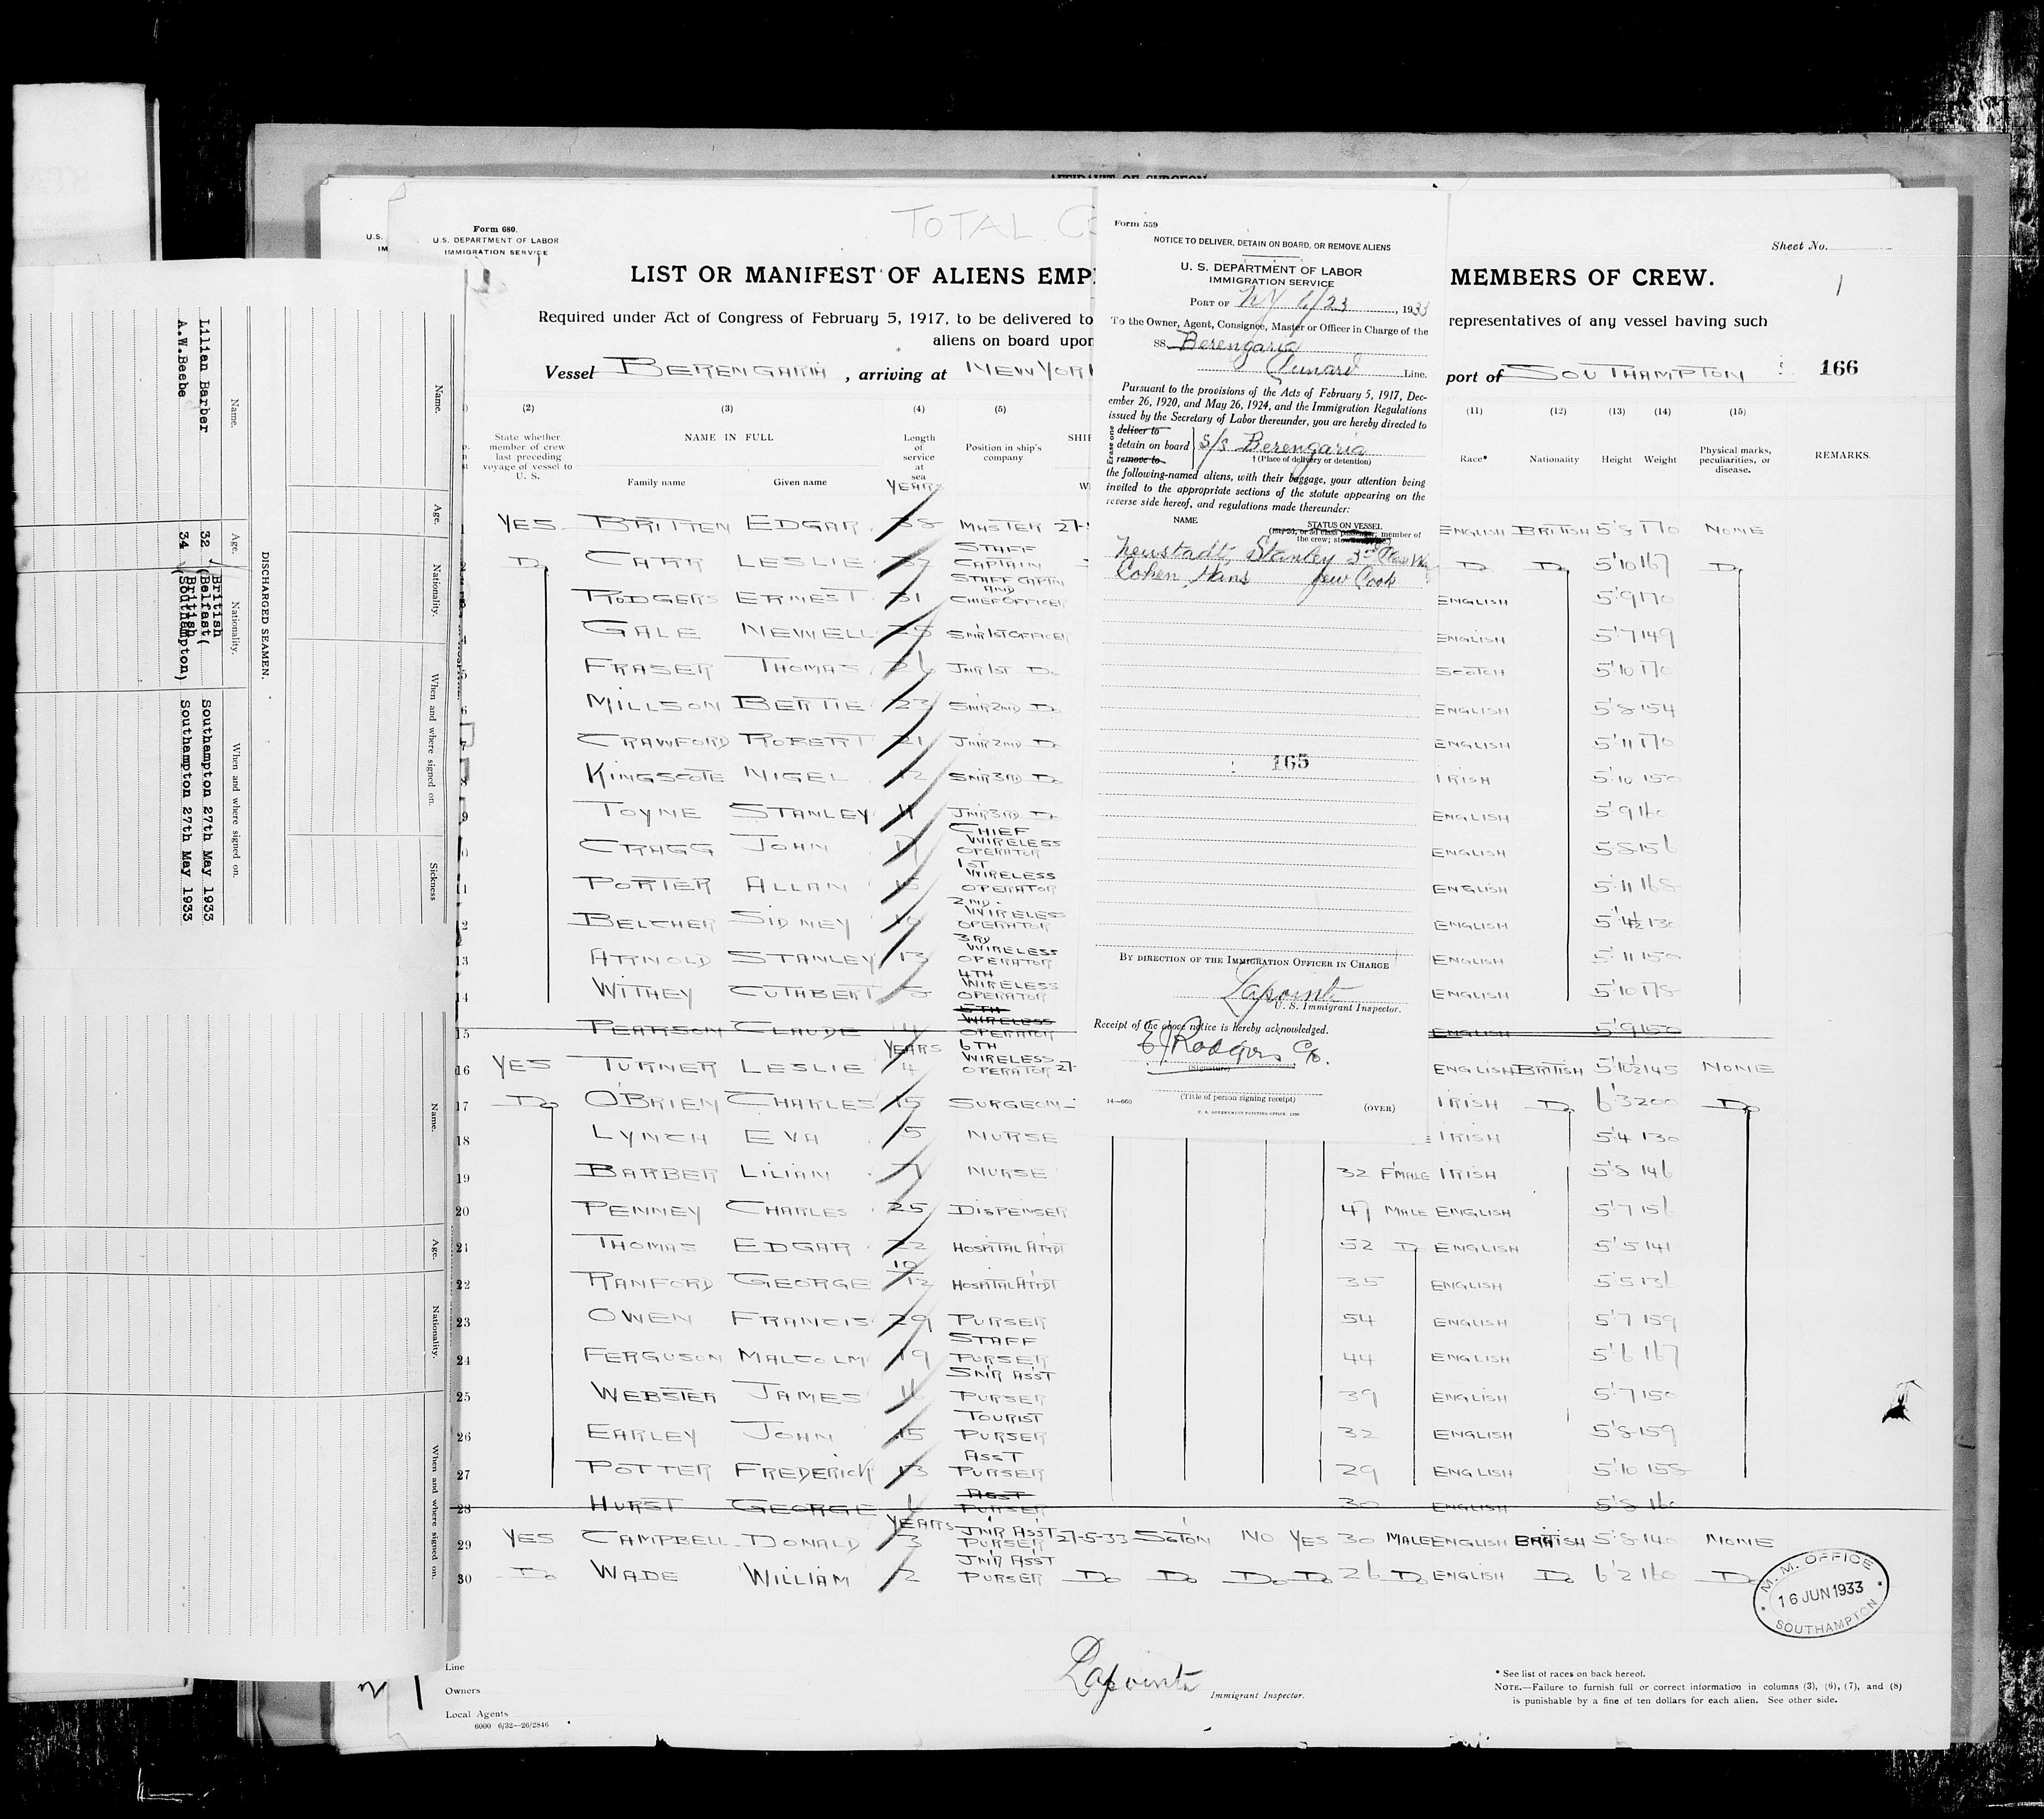 AFFIDAVIT OF SURGEON
TOTAL
Form 680.
U.S. DEPARTMENT OF LABOR
IMMIGRATION SERVICE
U.S.
IM
Sheet No.
1
LIST OR MANIFEST OF ALIENS EMP MEMBERS OF CREW.
Required under Act of Congress of February 5, 1917, to be delivered to representatives of any vessel having such
aliens on board upon
Vessel BERENGARIA , arriving at NEW YORK port of SOUTHAMPTON 166
(2) (3) (4) (5) (11) (12) (13) (14) (15)
State whether member of crew last preceding voyage of vessel to U. S.
NAME IN FULL
Family name Given name
Length of service at sea
YEARS
Position in ship's company
SHI
W
Race* Nationality Height Weight Physical marks, peculiarities, or disease. REMARKS.
YES BRITTEN EDGAR 38 MASTER 27- ENGLISH BRITISH 5'8 170 NONE
Do CARR LESLIE STAFF CAPTAIN Do Do 5'10 167 Do
RODGERS ERNEST 31 STAFF CAPTN AND CHIEF OFFICER ENGLISH 5'9 170
4 GALE NEWELL 25 SNR 1ST OFFICER ENGLISH 5'7 149
FRASER THOMAS 26 JNR 1ST Do SCOTCH 5'10 170
6 MILLSON BERTIE 23 SNR 2ND Do ENGLISH 5'8 154
7 CRAWFORD ROBERT 21 JNR 2ND Do ENGLISH 5'11 170
8 KINGSCOTE NIGEL 12 SNR 3RD Do IRISH 5'10 150
9 TOYNE STANLEY 11 JNR 3RD Do ENGLISH 5'9 160
0 CRAGG JOHN CHIEF WIRELESS OPERATOR ENGLISH 5'8 156
11 PORTER ALLAN 15 1ST WIRELESS OPERATOR ENGLISH 5'11 168
2 BELCHER SIDNEY 2ND. WIRELESS OPERATOR ENGLISH 5'4½ 130
13 ARNOLD STANLEY 13 3RD WIRELESS OPERATOR ENGLISH 5'11 150
14 WITHEY CUTHBERT 4TH WIRELESS OPERATOR ENGLISH 5'10 178
15 PEARSON CLAUDE 5TH WIRELESS OPERATOR ENGLISH 5'9 150
YEARS
16 YES TURNER LESLIE 4 6TH WIRELESS OPERATOR 27- ENGLISH BRITISH 5'10½ 145 NONE
17 Do O'BRIEN CHARLES 15 SURGEON IRISH Do 6'3 200 Do
18 LYNCH EVA 5 NURSE IRISH 5'4 130
19 BARBER LILIAN 7 NURSE 32 F'MALE IRISH 5'8 146
20 PENNEY CHARLES 25 DISPENSER 47 MALE ENGLISH 5'7 156
21 THOMAS EDGAR 22 HOSPITAL ATTDT 52 Do ENGLISH 5'5 141
22 RANFORD GEORGE 10/12 HOSPITAL ATTDT 35 ENGLISH 5'5 136
23 OWEN FRANCIS 29 PURSER 54 ENGLISH 5'7 159
24 FERGUSON MALCOLM 19 STAFF PURSER 44 ENGLISH 5'6 167
25 WEBSTER JAMES 11 SNR ASST PURSER 39 ENGLISH 5'7 150
26 EARLEY JOHN 15 TOURIST PURSER 32 ENGLISH 5'8 159
27 POTTER FREDERICK 13 ASST PURSER 29 ENGLISH 5'10 158
28 HURST GEORGE 6 ASST PURSER 30 ENGLISH 5'8 160
YEARS
29 YES CAMPBELL DONALD 3 JNR ASST PURSER 27-5-33 SOTON NO YES 30 MALE ENGLISH BRITISH 5'8 140 NONE
30 Do WADE WILLIAM 2 JNR ASST PURSER Do Do Do Do 26 Do ENGLISH Do 6'2 160 Do
M. M. OFFICE
16 JUN 1933
SOUTHAMPTON
Line
Owners
Local Agents
6000 6/32—26/2846
Lapointe
Immigrant Inspector.
* See list of races on back hereof.
NOTE.—Failure to furnish full or correct information in columns (3), (6), (7), and (8)
is punishable by a fine of ten dollars for each alien. See other side.
Form 559
NOTICE TO DELIVER, DETAIN ON BOARD, OR REMOVE ALIENS
U. S. DEPARTMENT OF LABOR
IMMIGRATION SERVICE
PORT OF NY 6/23, 1933
To the Owner, Agent, Consignee, Master or Officer in Charge of the
SS. Berengaria
Cunard Line.
Pursuant to the provisions of the Acts of February 5, 1917, Dec-
ember 26, 1920, and May 26, 1924, and the Immigration Regulations
issued by the Secretary of Labor thereunder, you are hereby directed to
Erase one
deliver to
detain on board S/S Berengaria
remove to † (Place of delivery or detention)
the following-named aliens, with their baggage, your attention being
invited to the appropriate sections of the statute appearing on the
reverse side hereof, and regulations made thereunder:
NAME STATUS ON VESSEL
member of
the crew;
Neustadt, Stanley 3rd Class
Cohen, Hans Jew Cook
165
BY DIRECTION OF THE IMMIGRATION OFFICER IN CHARGE
Lapointe
U. S. Immigrant Inspector.
Receipt of the above notice is hereby acknowledged.
E Rodgers C/o.
(Signature)
(Title of person signing receipt)
14—660
U. S. GOVERNMENT PRINTING OFFICE
(OVER)
DISCHARGED SEAMEN.
Name. Age. Nationality. When and where signed on.
Lilian Barber 32 British (Belfast( Southampton 27th May 1933
A.W.Beebe 34 British (Southampton) Southampton 27th May 1933
Name. Age. Nationality. When and where signed on. Sickness
Name. Age. Nationality. When and where signed on.